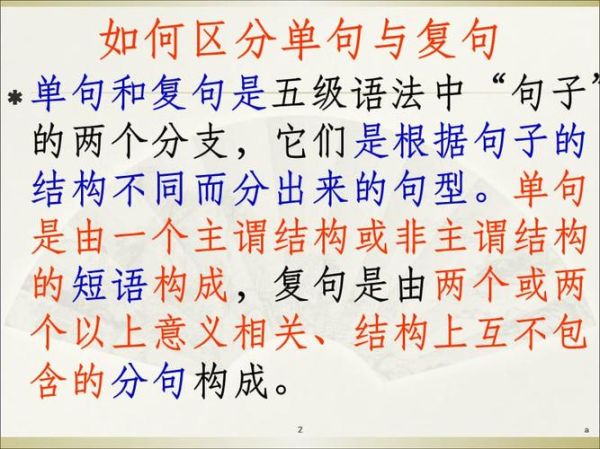 如何区分单句与复句
* 单句和复句是五级语法中“句子”
的两个分支，它们是根据句子的
结构不同而分出来的句型。单句
是由一个主谓结构或非主谓结构
的短语构成，复句是由两个或两
个以上意义相关、结构上互不包
含的分句构成。
2
a